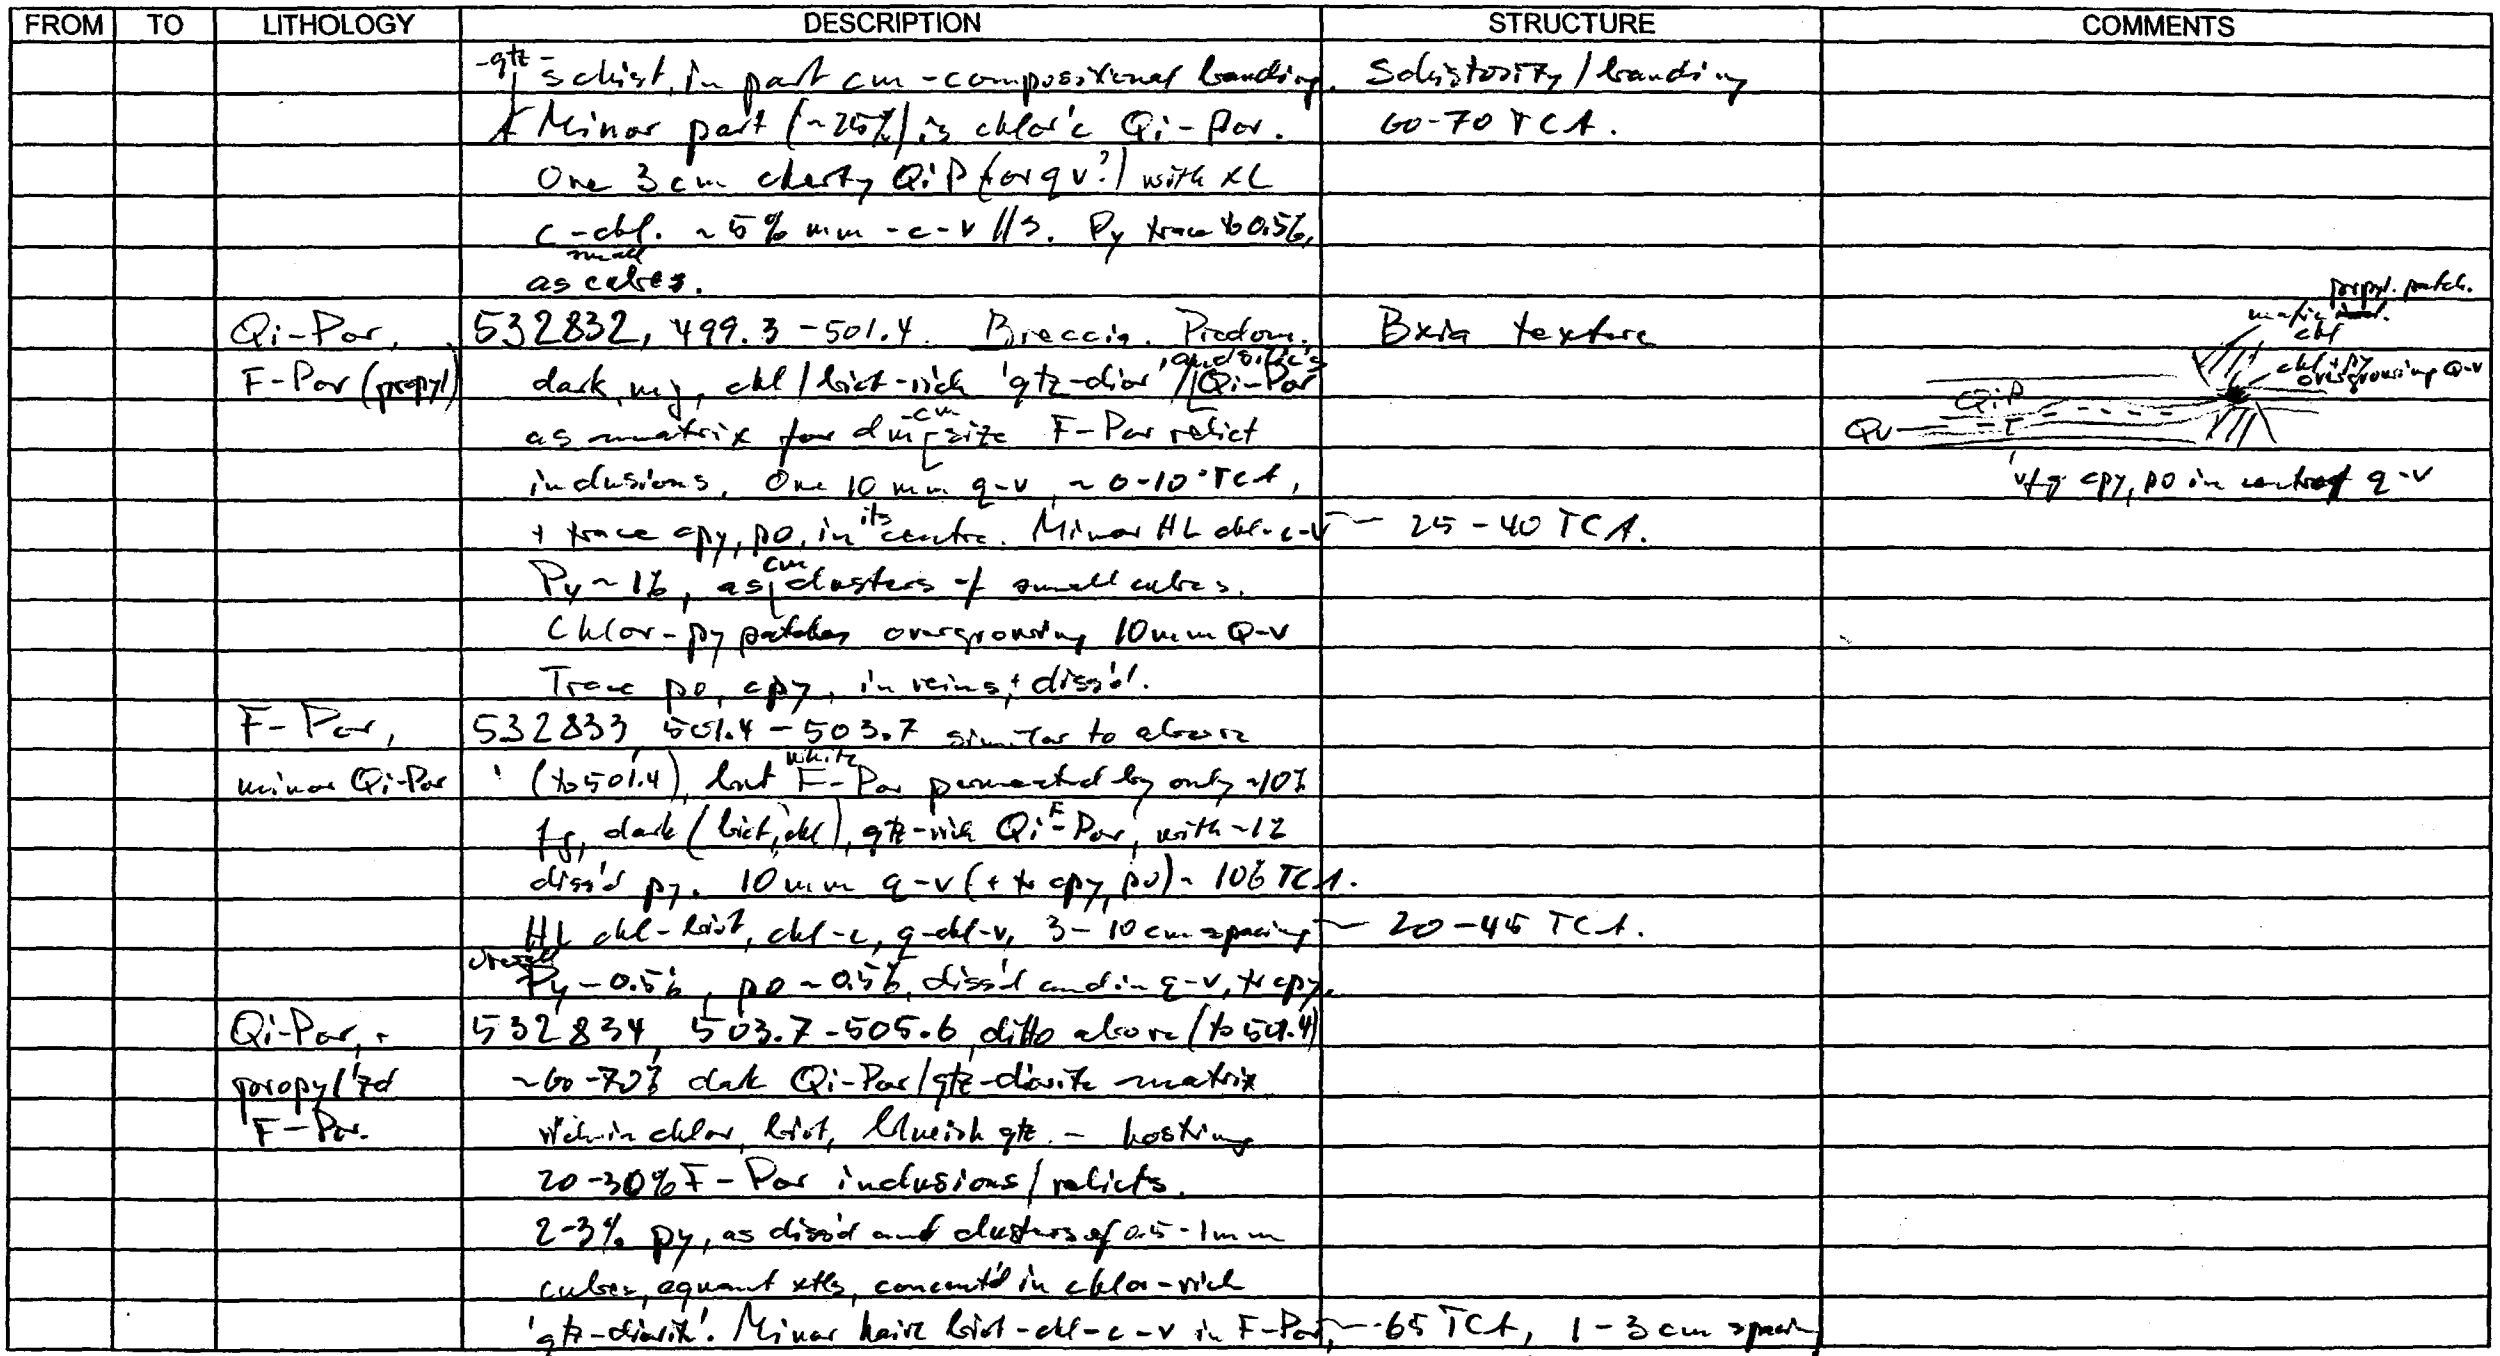 FROM TO LITHOLOGY DESCRIPTION STRUCTURE COMMENTS
-qtz-
schist, in part cm-compositional banding. Schistosity/banding
Minor part (~25%) is chlor'c Qi-Por. 60-70 TCA.
One 3cm cherty QiP (or qv?) with XL
c-chl. ~5% mm-c-v //S. Py trace to 0.5%,
small
as cubes.
propyl. patch.
Qi-Por, 532832, 499.3-501.4. Breccia. Predom. Bxia texture
mafic
chl
andsitic's
F-Por (propyl) dark, mg, chl/biot-rich 'qtz-dior'/Qi-Por
chl+py
overgrowing Q-v
-cm
QiP
as matrix for dm-size F-Por relict
Qv
inclusions, One 10 mm q-v, ~0-10°TCA,
vfg cpy, po in centre of q-v
its
+ trace cpy, po, in centre. Minor HL chl-c-v ~ 25-40 TCA.
cm
Py ~1%, as clusters of small cubes.
Chlor-py patches overgrowing 10mm Q-v
Trace po, cpy, in veins + diss'd.
F-Por, 532833, 501.4-503.7 similar to above
white
minor Qi-Por (to 501.4), but F-Por permeated by only ~10%
F
fg, dark (biot, chl), qtz-rich Qi-Por, with ~1%
diss'd py. 10 mm q-v (+ tr cpy, po) ~ 10° TCA.
HL chl-biot, chl-c, q-chl-v, 3-10 cm spacing ~ 20-45 TCA.
overall
Py ~0.5%, po ~0.5%, diss'd and in q-v, tr cpy.
Qi-Por, + 532834, 503.7-505.6, ditto above (to 501.4)
propyl'zd ~60-70% dark Qi-Por/qtz-diorite matrix
F-Por. rich in chlor, biot, blueish qtz - hosting
20-30% F-Por inclusions/relicts.
2-3% py, as diss'd and clusters of 0.5-1mm
cubes, equant xtls, concent'd in chlor-rich
'qtz-diorite'. Minor hair biot-chl-c-v in F-Por, ~ 65 TCA, 1-3 cm spacing